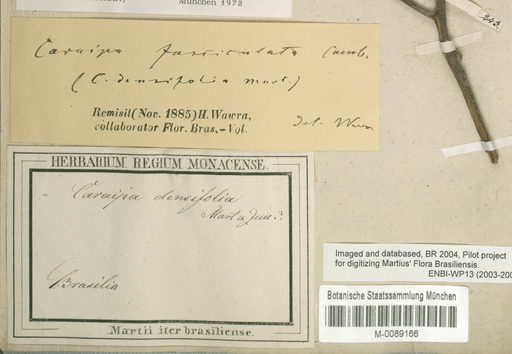 München 1972
243.
Caraipa fasciculata Camb.
(C. densifolia Mart.)
Remisit (Nov. 1885) H. Wawra,
collaborator Flor. Bras. - Vol.
Det. Wawra
HERBARIUM REGIUM MONACENSE.
Caraipa densifolia
Mart.
Brasilia
Martii iter brasiliense.
Imaged and databased, BR 2004, Pilot project
for digitizing Martius' Flora Brasiliensis.
ENBI-WP13 (2003-200
Botanische Staatssammlung München
M-0089166